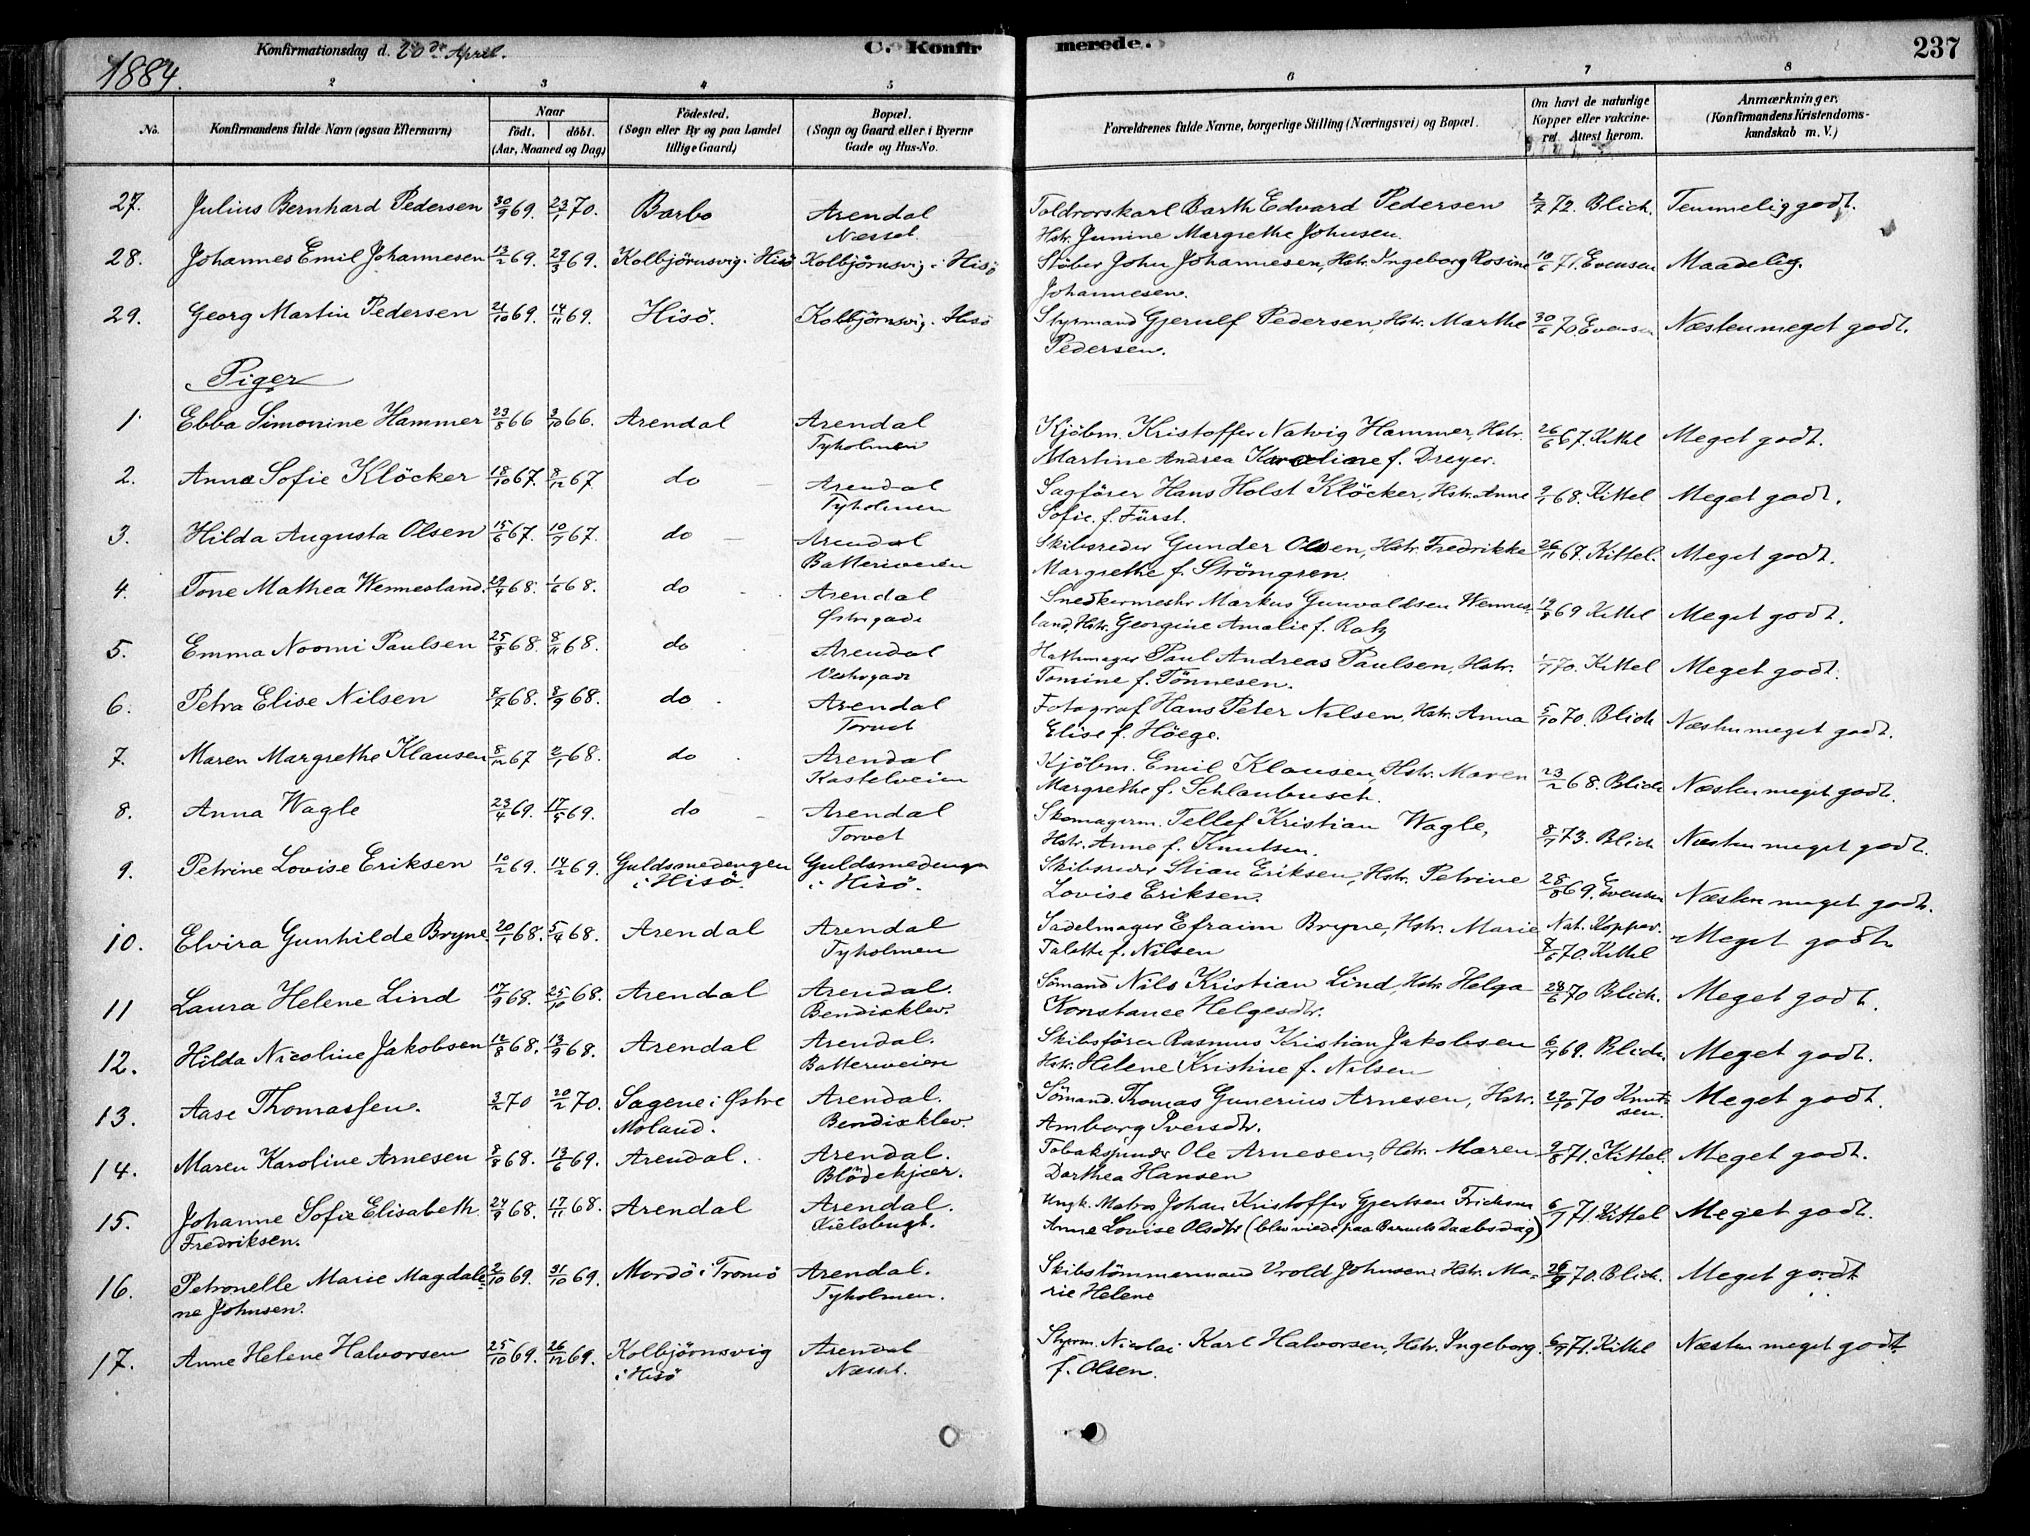 1884.
Konfirmationsdag d. 20de April.
C. Konfirmerede.
237
2 3 4 5 6 7 8
No.
Konfirmandens fulde Navn (ogsaa Efternavn)
Naar
født. | døbt.
(Aar, Maaned og Dag)
Fødested.
(Sogn eller By og paa Landet
tillige Gaard)
Bopæl.
(Sogn og Gaard eller i Byerne
Gade og Hus-No.
Forældrenes fulde Navne, borgerlige Stilling (Næringsvei) og Bopæl.
Om havt de naturlige
Kopper eller vakcine-
ret. Attest herom.
Anmærkninger.
(Konfirmandens Kristendoms-
kundskab m. V.)
27. Julius Bernhard Pedersen 30/9 69. 23/1 70. Barbo Arendal Toldrorskarl Barth Edvard Pedersen 2/7 72. Blich. Temmelig godt.
Næsset. Hstr. Junine Margrethe Johnsen.
28. Johannes Emil Johannesen 13/2 69. 29/3 69. Kolbjörnsvig i Hisö Kolbjörnsvig i Hisö Støber John Johannesen, Hstr. Ingeborg Rosine 10/6 71. Evensen Maadelig.
Johannesen.
29. Georg Martin Pedersen 21/10 69. 14/11 69. Hisö. Kolbjørnsvig. Hisö Styrmand Gjerulf Pedersen, Hstr. Marthe 30/6 70. Evensen Næsten meget godt.
Pedersen.
Piger
1. Ebba Simonine Hammer 23/8 66 3/10 66. Arendal Arendal Kjöbm. Kristoffer Natvig Hammer, Hstr. 26/6 67. Kittel Meget godt.
Tyholmen Martine Andrea Karoline f. Dreyer.
2. Anna Sofie Klöcker 18/10 67. 8/12 67. do Arendal Sagförer Hans Holst Klöcker, Hstr. Anne 9/1 68. Kittel Meget godt.
Tyholmen Sofie. f. Fürst.
3. Hilda Augusta Olsen 15/6 67. 10/9 67. do Arendal Skibsreder Gunder Olsen, Hstr. Fredrikke 26/11 67. Kittel. Meget godt.
Batteriveien Margrethe f. Strömgren.
4. Tone Mathea Wennesland. 29/4 68. 1/6 68. do Arendal Snedkermestr Markus Gunvaldsen Wennes- 19/9 69 Kittel Meget godt.
Østregade land, Hstr. Georgine Amalie f. Ratz
5. Emma Noomi Paulsen 25/8 68. 8/11 68. do Arendal Hattmager Paul Andreas Paulsen, Hstr. 1/7 70. Kittel Meget godt.
Vestregade Tomine f. Tönnesen.
6. Petra Elise Nilsen 7/7 68. 8/9 68. do Arendal Fotograf Hans Peter Nilsen, Hstr. Anna 5/10 70. Blich Næsten meget godt.
Torvet Elise f. Höege.
7. Maren Margrethe Klausen 8/12 67 2/1 68. do Arendal Kjöbm. Emil Klausen, Hstr. Maren 23/12 68. Blich Næsten meget godt.
Kastelveien Margrethe f. Schlaubusch.
8. Anna Wagle 23/4 69. 17/5 69. do Arendal Skomagerm. Tellef Kristian Wagle, 8/1 73. Blich Næsten meget godt.
Torvet Hstr. Anne f. Knutsen.
9. Petrine Lovise Eriksen 10/2 69. 14/2 69. Guldsmedengen Guldsmedengen Skibsreder Stian Eriksen, Hstr. Petrine 28/8 69. Evensen Næsten meget godt.
i Hisö. i Hisö. Lovise Eriksen.
10. Elvira Gunhilde Bryne 20/1 68. 5/4 68. Arendal Arendal Sadelmager Efraim Bryne, Hstr. Marie Nat. Kopper. Meget godt
Tyholmen Talette f. Nilsen 7/6 70. Kittel
11 Laura Helene Lind 17/9 68. 25/10 68. Arendal Arendal. Sömand Nils Kristian Lind, Hstr. Helga 28/6 70 Blich. Meget godt.
Bendixklev. Konstance Helgesdtr.
12. Hilda Nicoline Jakobsen 12/8 68. 13/9 68. Arendal Arendal. Skibsförer Rasmus Kristian Jakobsen 6/7 69. Blich. Meget godt.
Batteriveien Hstr. Helene Kristine f. Nilsen
13. Aase Thomassen. 3/2 70 20/2 70. Sagene i Østre Arendal. Sömand. Thomas Gunerius Arnesen, Hstr. 29/10 70 Knut- Meget godt.
Moland. Bendixklev. Amborg Iversdtr. sen.
14. Maren Karoline Arnesen 8/8 68. 13/6 69. Arendal. Arendal. Tobakspinder Ole Arnesen, Hstr. Maren 9/8 71. Kittel. Meget godt.
Blödekjær. Dorthea Hansen
15. Johanne Sofie Elisabeth 24/9 68. 17/11 68. Arendal Arendal. Ungk. Matros Johan Kristoffer Gjertsen 6/7 71. Kittel Meget godt.
Fredriksen. Kielsbugt. Anne Lovise Olsdtr (blev viede paa Barnets Daabsdag)
16. Petronelle Marie Magdale- 2/10 69. 31/10 69. Merdö i Tromö Arendal. Skibstömmermand Vrold Johnsen. Hstr. Ma- 26/9 70. Blich. Meget godt
ne Johnsen. Tyholmen. rie Helene
17. Anne Helene Halvorsen 25/10 69. 26/12 69. Kolbjörnsvig Arendal Styrm. Nicolai Karl Halvorsen, Hstr. Ingeborg 6/9 71. Kittel Næsten meget godt
i Hisö Næsset. f. Olsen.